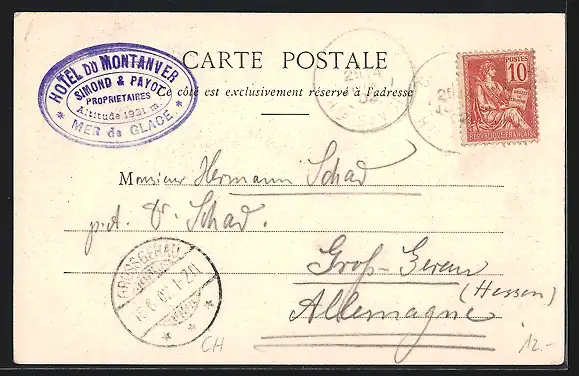 HOTEL DU MONTANVER
SIMOND & PAYOT
PROPRIETAIRES
Altitude 1921 m.
* MER de GLACE *
CARTE POSTALE
Ce côté est exclusivement réservé à l'adresse
POSTES
10
REPUBLIQUE FRANÇAISE
Monsieur Hermann Schad
p. A. V. Schad.
Groß-Gerau
(Hessen)
Allemagne
GROSSGERAU
CH
12.-